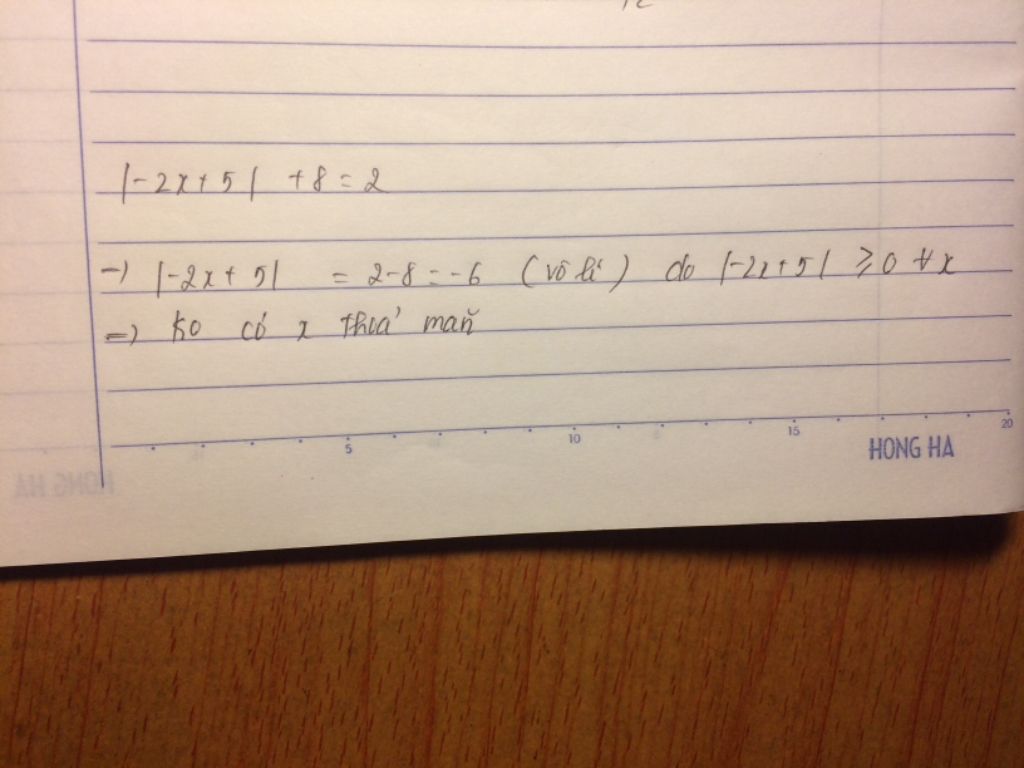 |-2x+5| +8=2
→ |-2x+5| = 2-8=-6 (vô lí) do |-2x+5| ≥0 ∀x
=> Ko có x thoả mãn
5 10 15 20
HONG HA